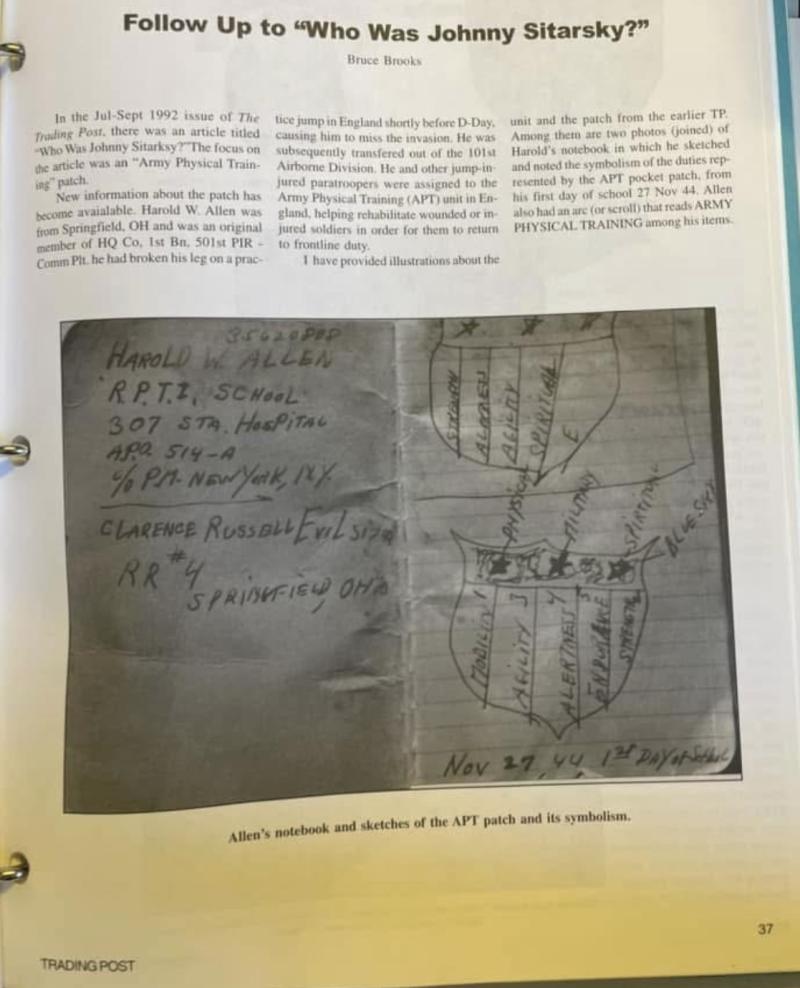 Follow Up to “Who Was Johnny Sitarsky?”
Bruce Brooks
In the Jul-Sept 1992 issue of The
Trading Post, there was an article titled
“Who Was Johnny Sitarksy?” The focus on
the article was an “Army Physical Train-
ing” patch.
New information about the patch has
become avaialable. Harold W. Allen was
from Springfield, OH and was an original
member of HQ Co, 1st Bn, 501st PIR -
Comm Plt. he had broken his leg on a prac-
tice jump in England shortly before D-Day,
causing him to miss the invasion. He was
subsequently transfered out of the 101st
Airborne Division. He and other jump-in-
jured paratroopers were assigned to the
Army Physical Training (APT) unit in En-
gland, helping rehabilitate wounded or in-
jured soldiers in order for them to return
to frontline duty.
I have provided illustrations about the
unit and the patch from the earlier TP.
Among them are two photos (joined) of
Harold's notebook in which he sketched
and noted the symbolism of the duties rep-
resented by the APT pocket patch, from
his first day of school 27 Nov 44. Allen
also had an arc (or scroll) that reads ARMY
PHYSICAL TRAINING among his items.
HAROLD W. ALLEN
R.P.T.I. SCHOOL
307 STA. HOSPITAL
APO 514-A
c/o PM. NEW YORK, N.Y.
CLARENCE RUSSELL
RR #4
SPRINGFIELD, OHIO
STRENGTH
AGILITY
SPIRITUAL
E
PHYSICAL
MILITARY
SPIRITUAL
MOBILITY 1
AGILITY 3
ALERTNESS 4
ENDURANCE 5
STRENGTH
NOV 27, 44, 1st DAY of School
Allen's notebook and sketches of the APT patch and its symbolism.
37
TRADING POST